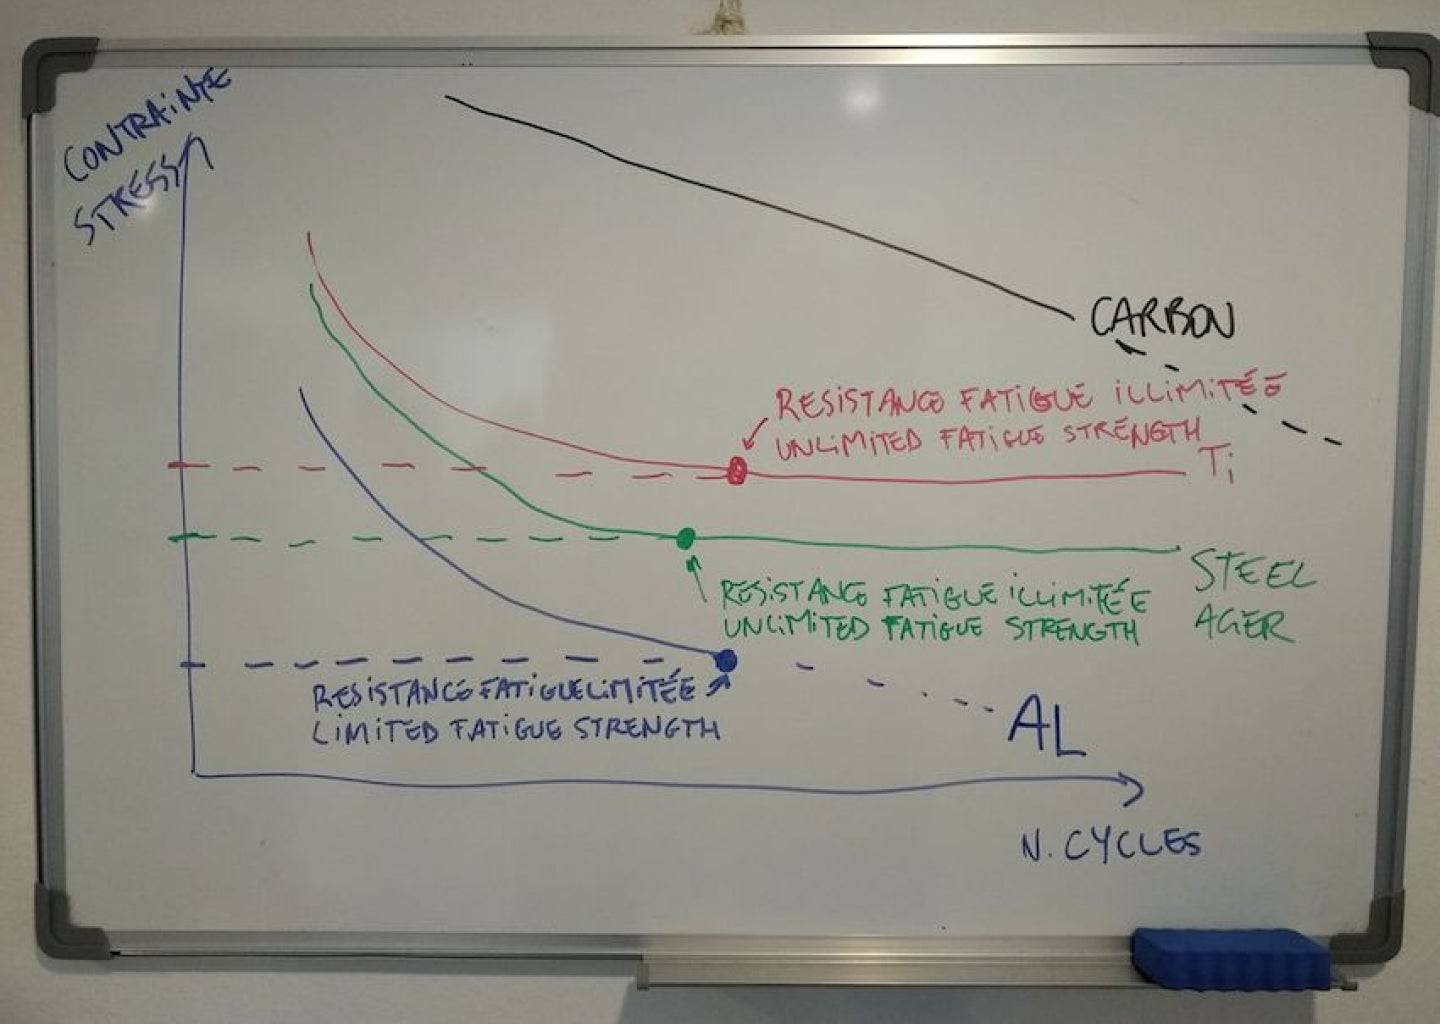 CONTRAINTE
STRESS
CARBON
RESISTANCE FATIGUE ILLIMITÉE
UNLIMITED FATIGUE STRENGTH
Ti
STEEL
ACIER
RESISTANCE FATIGUE ILLIMITÉE
UNLIMITED FATIGUE STRENGTH
RESISTANCE FATIGUE LIMITÉE
LIMITED FATIGUE STRENGTH
AL
N. CYCLES